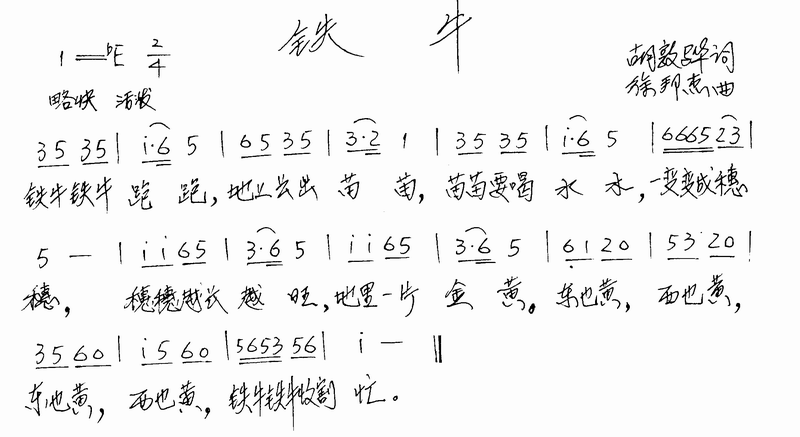 铁 牛
1=♭E 2/4
胡敦骅词
略快 活泼
徐邦杰曲
35 35 | i·6 5 | 65 35 | 3·2 1 | 35 35 | i·6 5 | 6665 23 |
铁牛铁牛 跑 跑,地上长出 苗 苗,苗苗要喝 水 水,一变变成穗
5 — | i i 65 | 3·6 5 | i i 65 | 3·6 5 | 61 20 | 53 20 |
穗, 穗穗越长 越 旺,地里一片 金 黄。东也黄, 西也黄,
35 60 | i5 60 | 5653 56 | i — ‖
东也黄, 西也黄, 铁牛铁牛收割 忙。